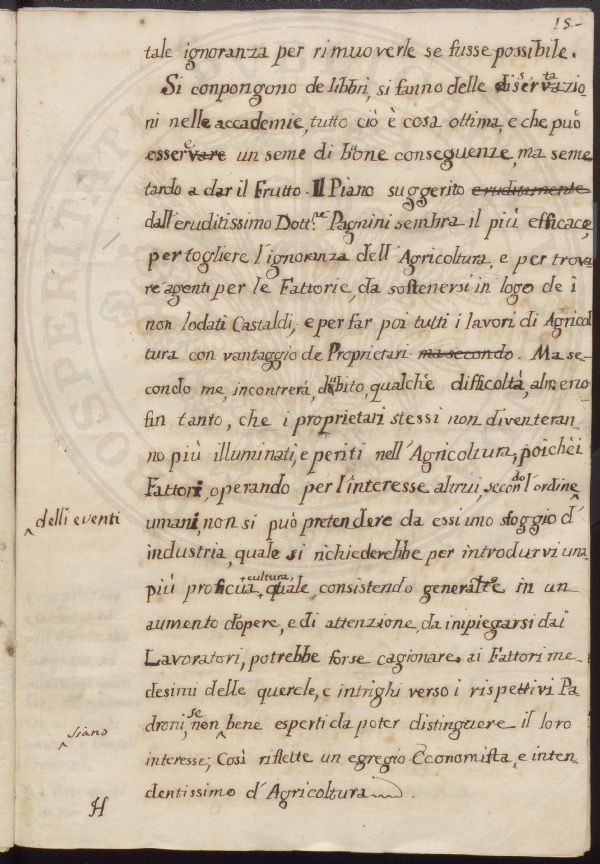 15-
tale ignoranza per rimuoverle se fusse possibile.
Si conpongono de libbri, si fanno delle disertazio
ni nelle accademie, tutto ciò è cosa ottima, e che può
essere un seme di bone conseguenze, ma seme
tardo a dar il Frutto. Il Piano suggerito eruditamente
dall'eruditissimo Dott.re Pagnini sembra il più efficace,
per togliere l'ignoranza dell'Agricoltura, e per trova
re agenti per le Fattorie, da sostenersi in logo de i
non lodati Castaldi, e per far poi tutti i lavori di Agricol
tura con vantaggio de Proprietari ma secondo. Ma se-
condo me, incontrerà, dubito, qualche difficoltà, almeno
fin tanto, che i proprietari stessi non diventeran
no più illuminati, e periti nell'Agricoltura, poichè i
Fattori, operando per l'interesse altrui, secondo l'ordine
delli eventi
umani, non si può pretendere da essi uno sfoggio d'
industria, quale si richiederebbe per introdurvi una
più proficua cultura, quale consistendo generalte in un
aumento d'opere, e di attenzione da impiegarsi dai
Lavoratori, potrebbe forse cagionare ai Fattori me-
desimi delle querele, e intrighi verso i rispettivi Pa
droni, se non bene esperti da poter distinguere il loro
siano
interesse; Così riflette un egregio Economista, e inten
dentissimo d'Agricoltura
H